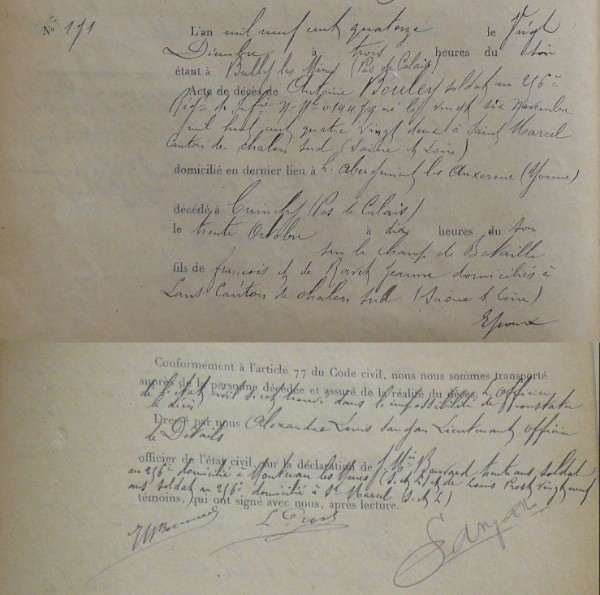 N° 171
L'an mil neuf cent quatorze le Vingt
Décembre à trois heures du soir
étant à Bully les Mines (Pas de Calais)
Acte de décès de Antoine Boulley soldat au 256e
Rég. de Inf. né le vingt six Novembre
mil huit cent quatre vingt deux à Saint Marcel
Canton de chalon sud (Saône & Loire)
domicilié en dernier lieu à L'Abergement les Auxonne (Yonne)
décédé à Cuinchy (Pas de Calais)
le trente Octobre à dix heures du soir
sur le champ de Bataille
fils de françois et de Jeanne domiciliés à
Lans Canton de chalon sud (Saône & Loire)
Epoux
Conformément à l'article 77 du Code civil, nous nous sommes transporté
auprès de la personne décédée et assuré de la réalité du décès. L'Officier
de l'état civil s'est trouvé dans l'impossibilité de constater
le décès
Dressé par nous Alexandre Louis Sanjan Lieutenant officier
de Détails
officier de l'état civil, sur la déclaration de trente ans, soldat
au 256e domicilié à les Mines (S. & L) et de Louis Prost vingt neuf
ans soldat au 256e domicilié à St Marcel (S. & L)
témoins, qui ont signé avec nous, après lecture.
L. Prost
Sanjan